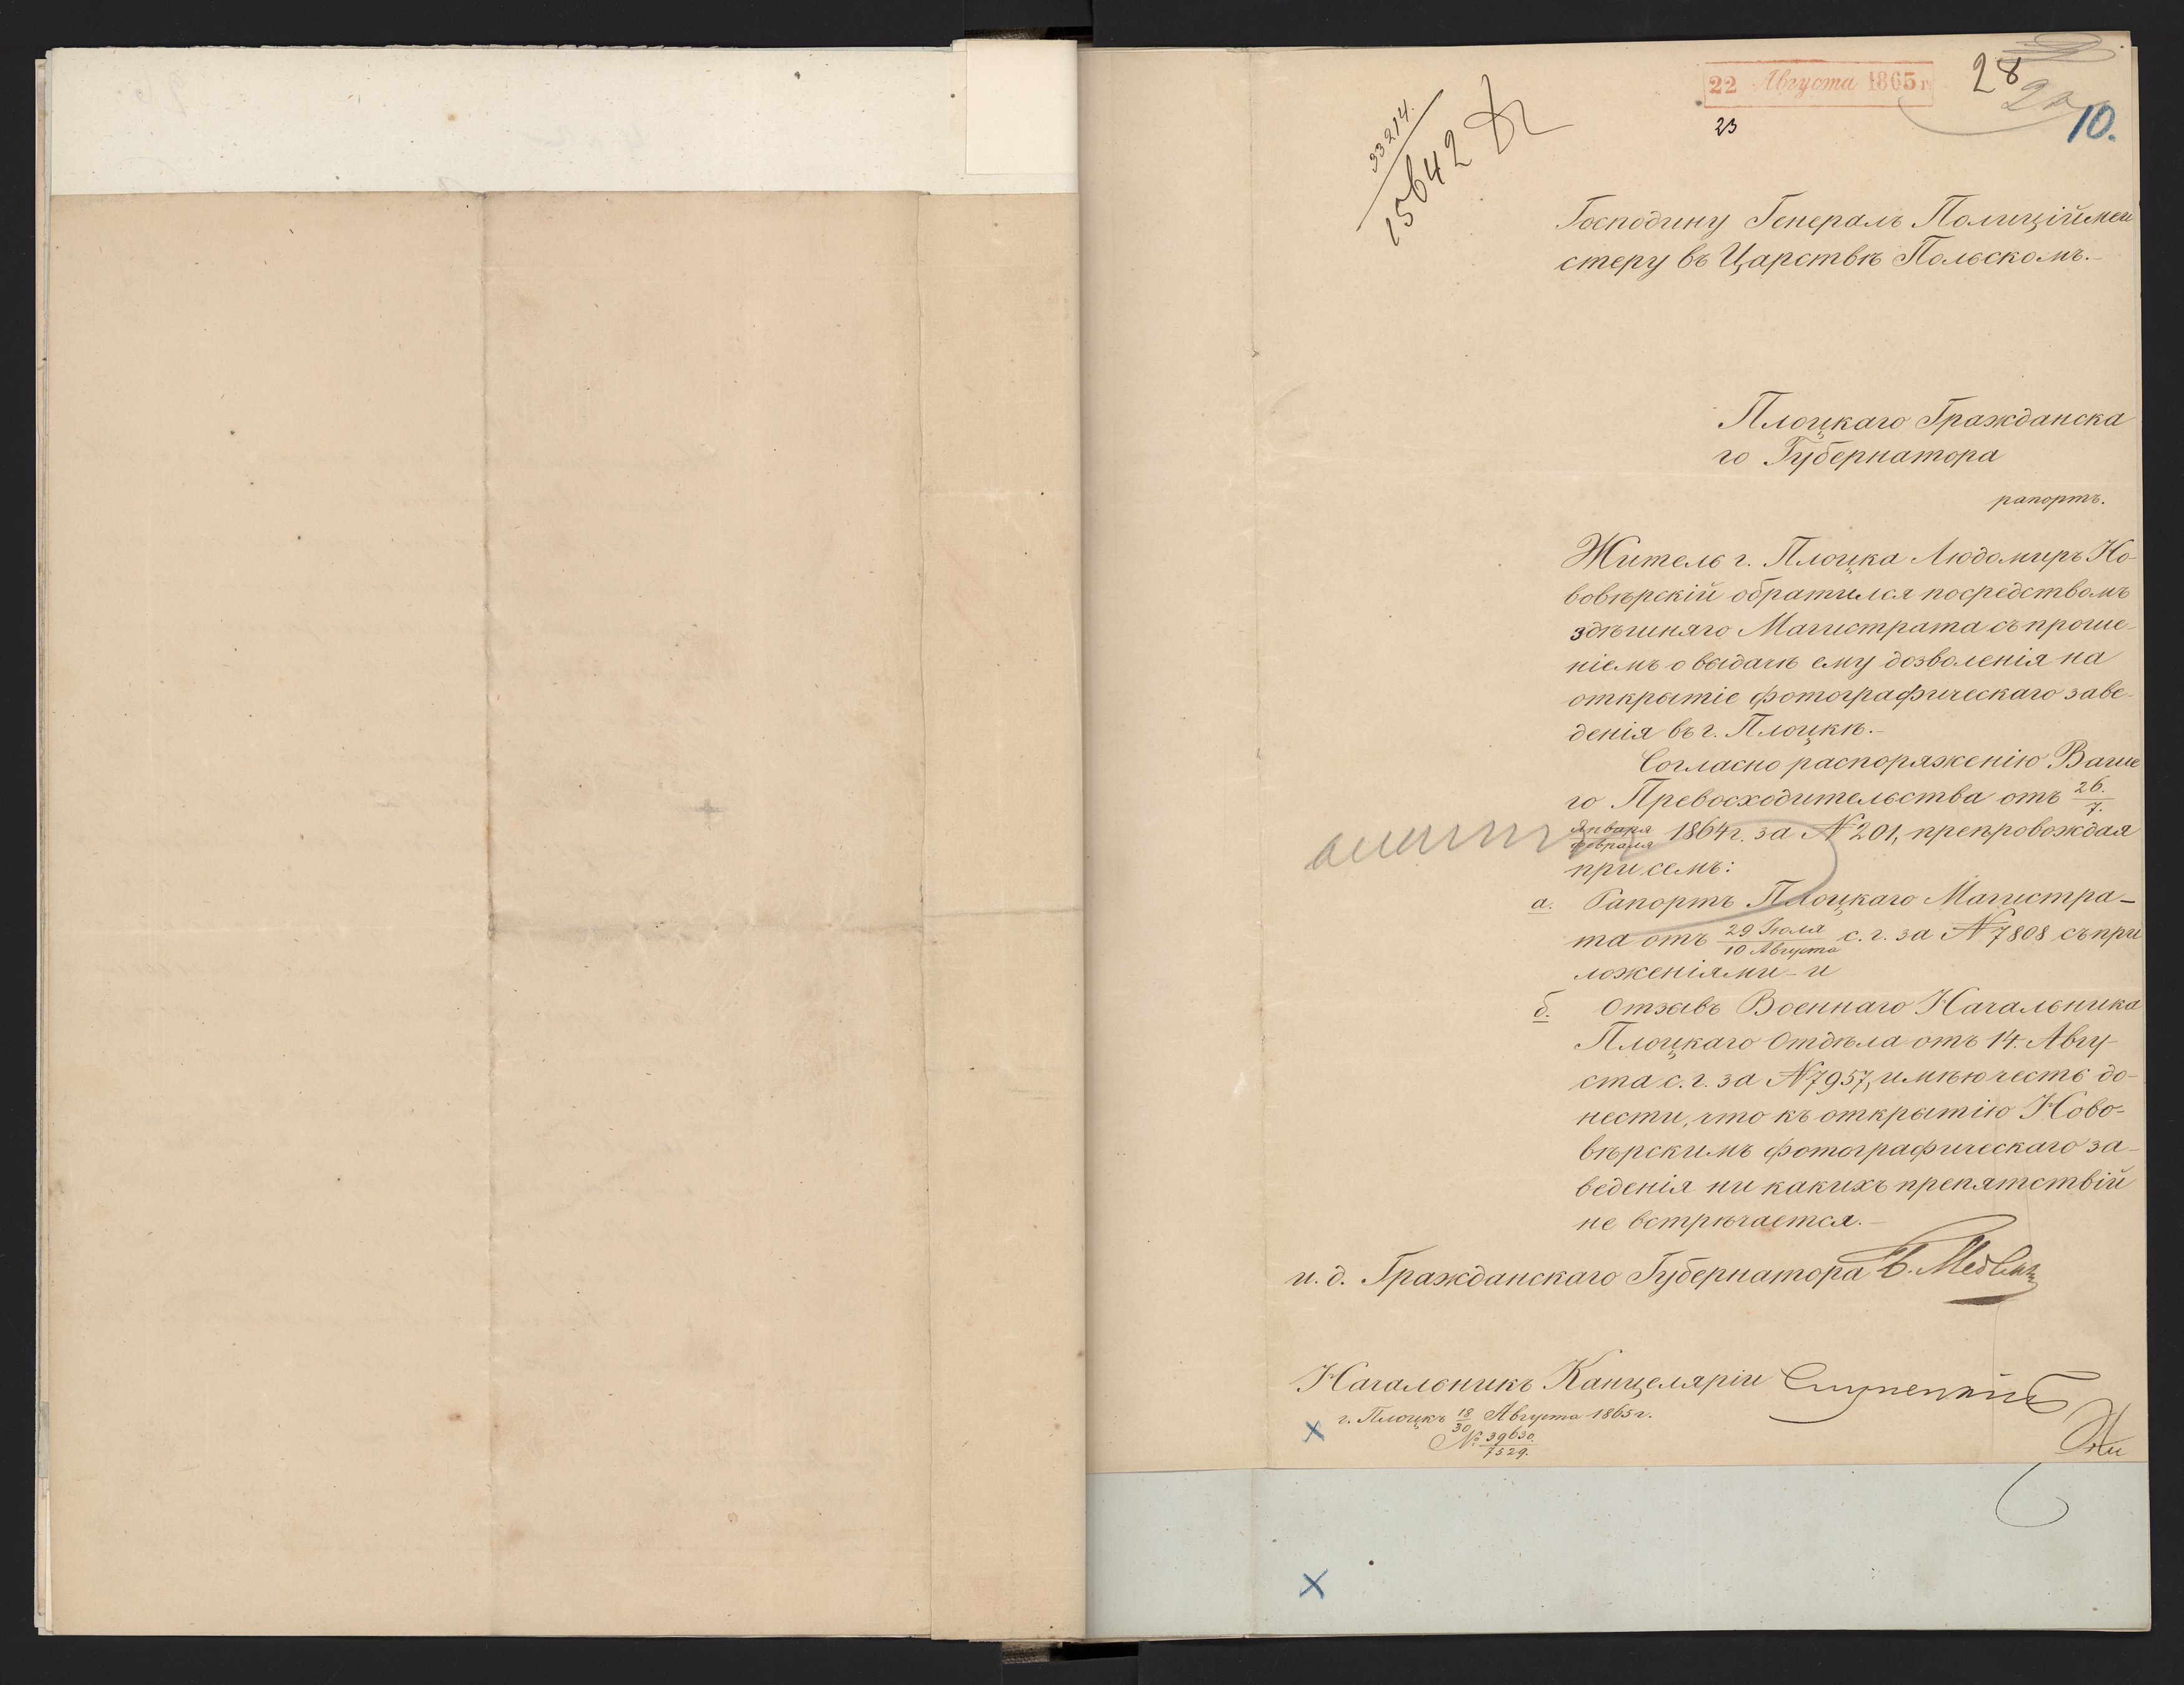 22 Августа 1865 г
28
23
10.
33214.
15642
Господину Генералъ Полиціймей
стеру въ Царствѣ Польскомъ.-
Плоцкаго Гражданска
го Губернатора
рапортъ.
Житель г. Плоцка Людомиръ Но-
вовѣрскій обратился посредствомъ
здѣшняго Магистрата съ проше-
ніемъ о выдачѣ ему дозволенія на
открытіе фотографическаго заве-
денія въ г. Плоцкѣ.-
Согласно распоряженію Ваше
го Превосходительства отъ 26./7.
Января/Февраля 1864 г. за № 201, препровождая
при семъ:
а. Рапортъ Плоцкаго Магистра-
та отъ 29 Іюля/10 Августа с. г. за № 7808 съ при
ложеніями - и
б. Отзывъ Военнаго Начальника
Плоцкаго Отдѣла отъ 14. Авгу-
ста с. г. за № 7957, имѣю честь до-
нести, что къ открытію Ново-
вѣрскимъ фотографическаго за-
веденія ни какихъ препятствій
не встрѣчается.-
и. д. Гражданскаго Губернатора
Начальникъ Канцеляріи
г. Плоцкъ 18/30 Августа 1865 г.
№ 39630./7529.